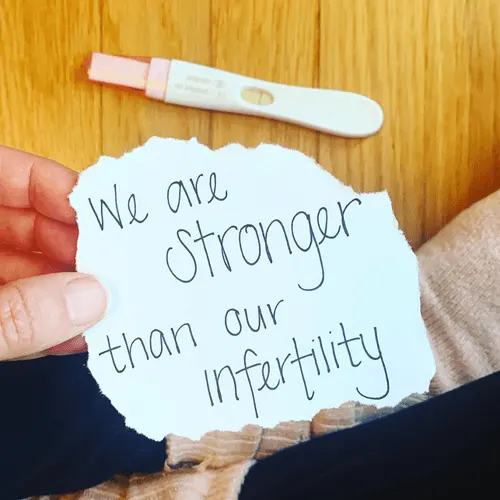 We are
Stronger
than our
Infertility